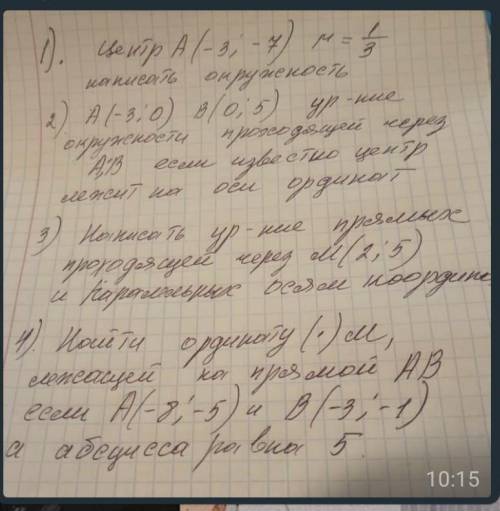 1). Центр А(-3; -7) r = 1/3
написать окружность
2) А(-3; 0) В(0; 5) ур-ние
окружности проходящей через
А; В если известно центр
лежит на оси ординат
3) Написать ур-ние прямых
проходящей через М(2; 5)
и параллельных осям координ
4). Найти ординату (·) М,
лежащей на прямой АВ
если А(-8; -5) и В(-3; -1)
а абсцисса равна 5.
10:15